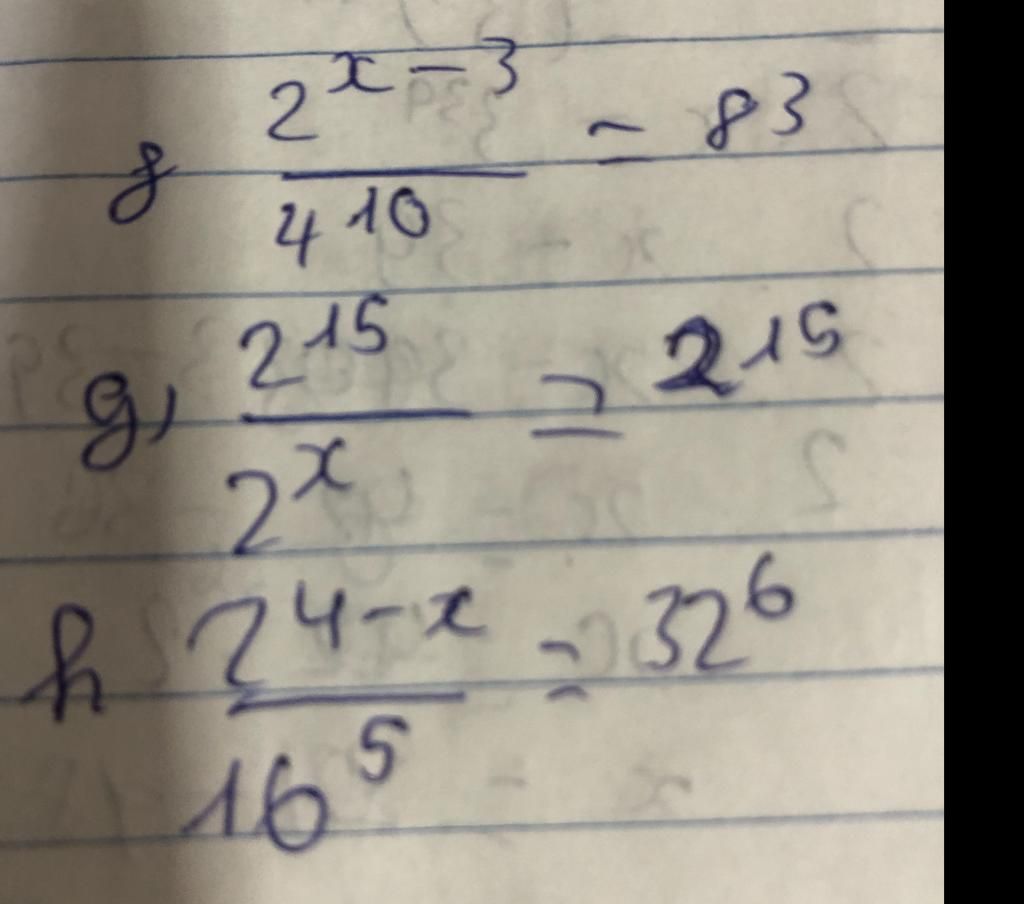 f 2^{x-3} / 4^{10} = 8^3
g) 2^{15} / 2^x = 2^{15}
h 2^{4-x} / 16^5 = 32^6